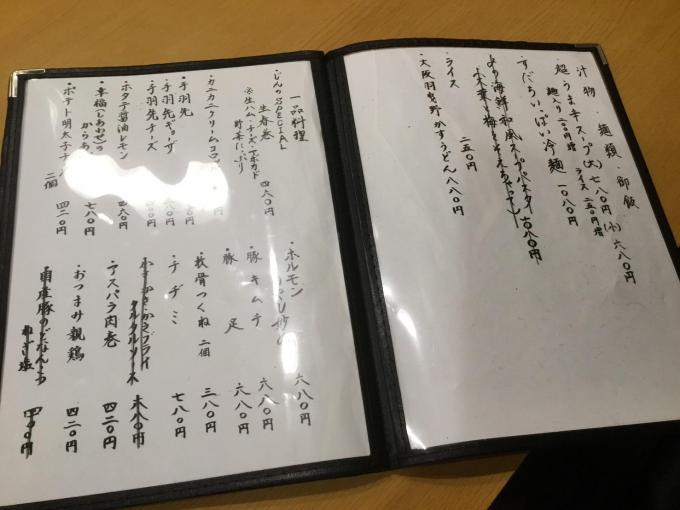 汁物・麺類・御飯
・超うまキスープ(大)七八〇円(小)六八〇円
麺入り二〇〇円増 ライス二五〇円増
・すだちいっぱい冷麺 一〇八〇円
ライス 二五〇円
・大阪羽曳野かすうどん 八八〇円
一品料理
・じんのSPECIAL
生春巻 四六〇円
※生ハム・チーズ・アボカド
野菜たっぷり
・カニカニクリームコロッケ
・手羽先
・手羽先ギョーザ
・手羽先チーズ
・ホタテ醤油レモン
・幸福(しあわせ)の
からあげ 七八〇円
・ポテト明太子チーズ
二個 四二〇円
・ホルモン
六八〇円
・豚キムチ 六八〇円
・豚足 六八〇円
・軟骨つくね 二個 三八〇円
・チヂミ 七八〇円
タルタルソース 六八〇円
・アスパラ肉巻 四二〇円
・おつまみ親鶏 四二〇円
・国産豚のどなんこつ
ねぎ塩 四〇〇円